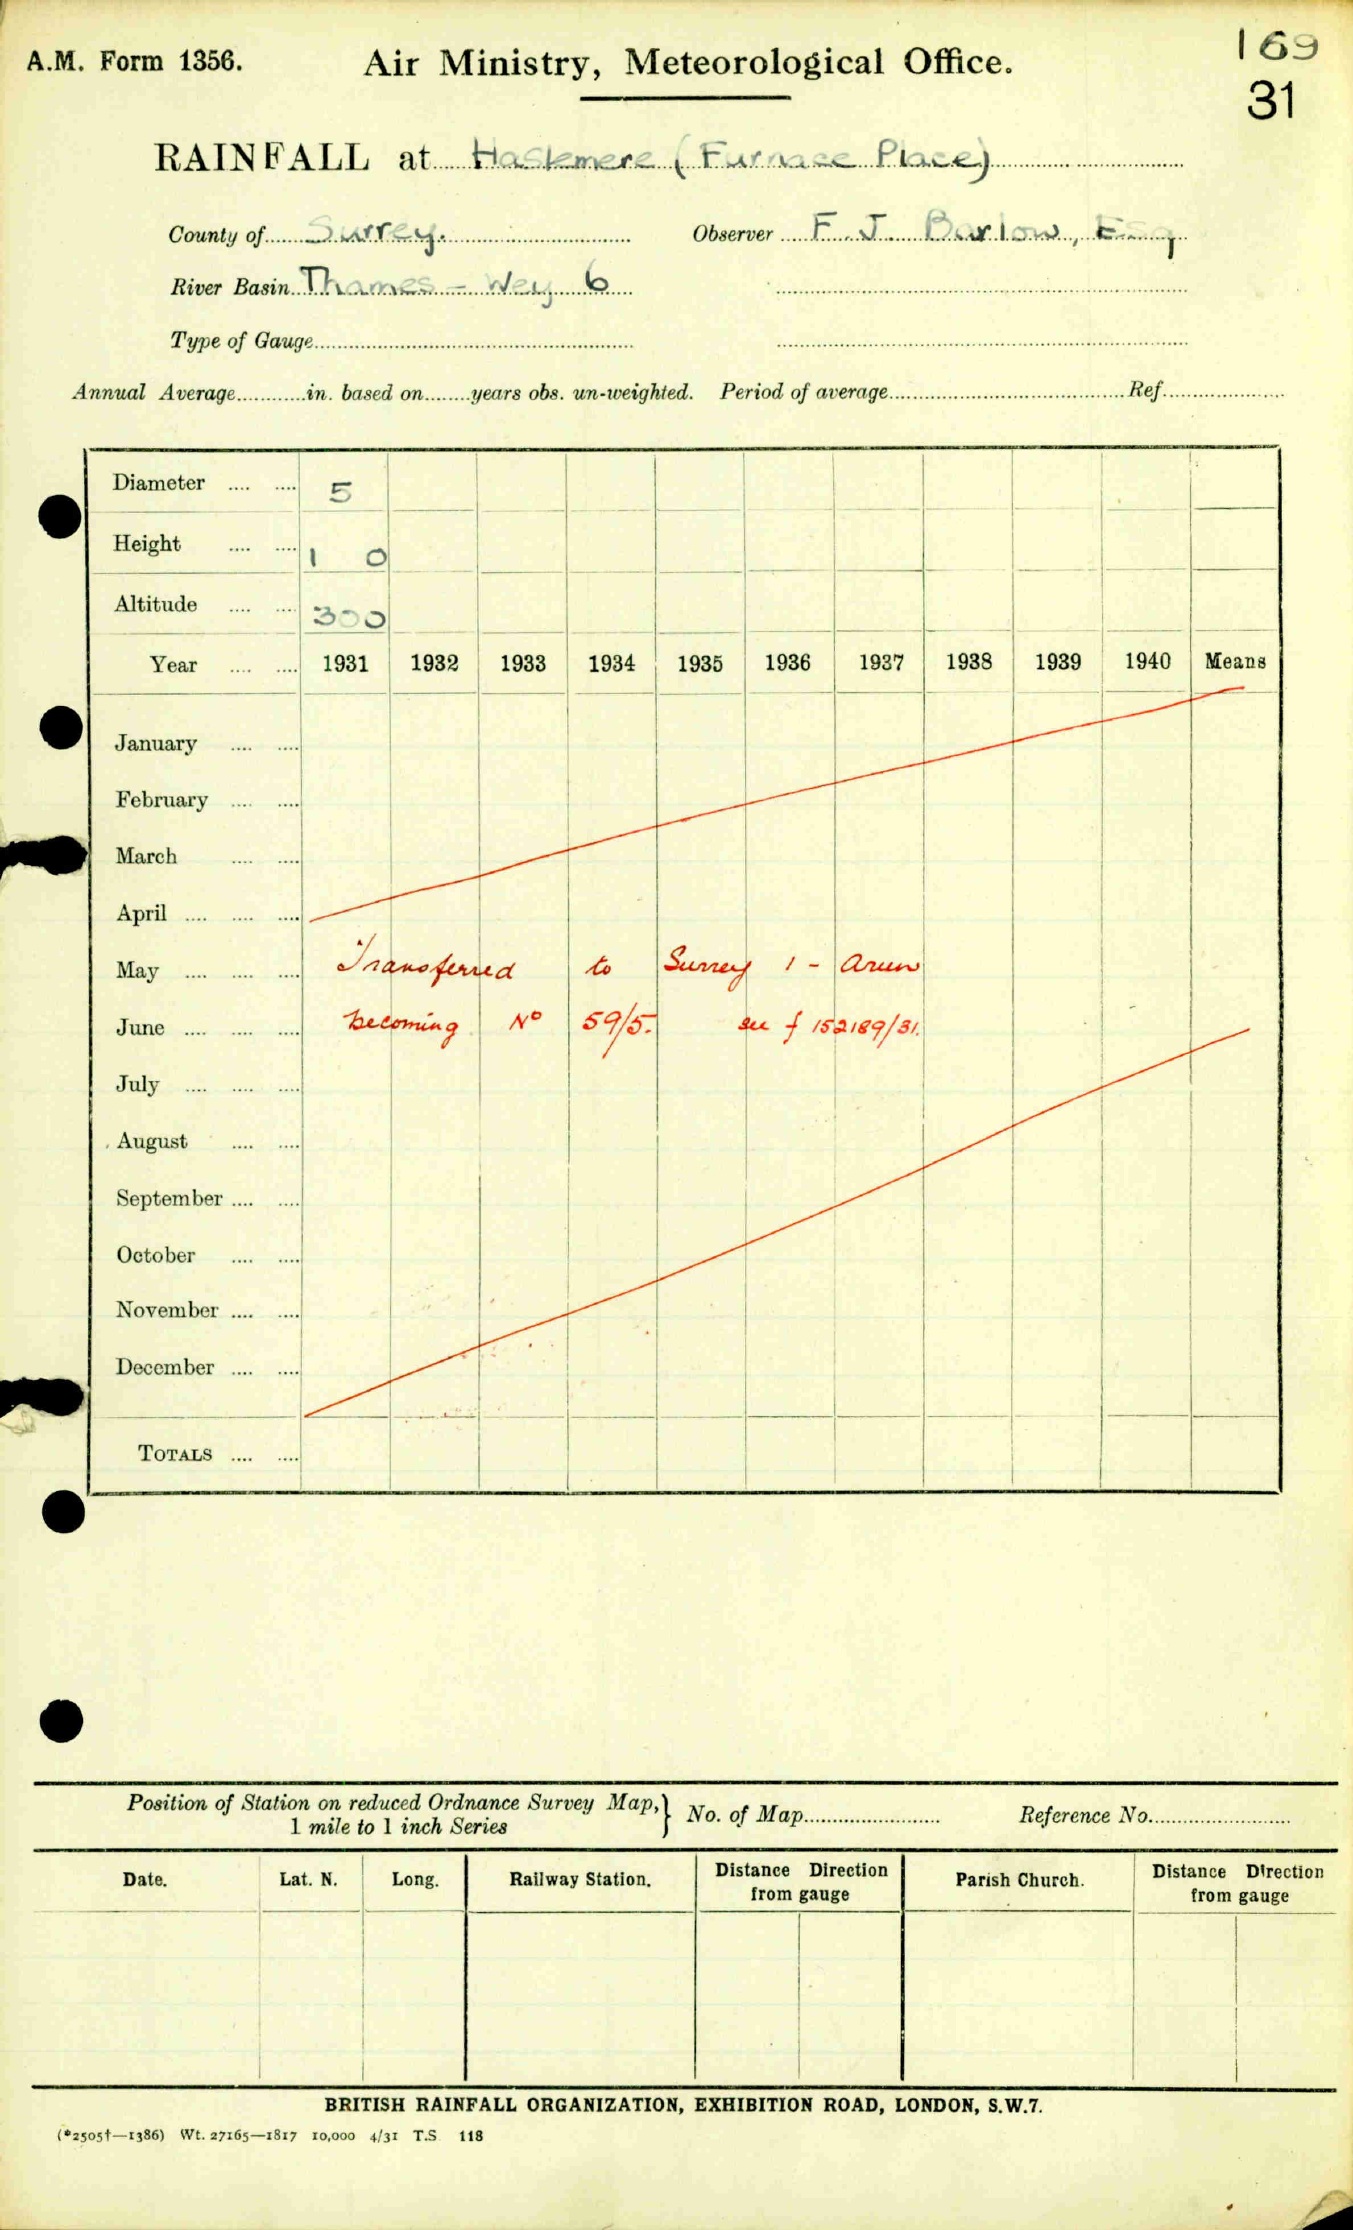 A.M. Form 1356.
Air Ministry, Meteorological Office.
169
31
RAINFALL at Haslemere (Furnace Place)
County of Surrey. Observer F. J. Barlow, Esq
River Basin Thames - Wey 6
Type of Gauge
Annual Average in. based on years obs. un-weighted. Period of average Ref.
Diameter 5
Height 1 0
Altitude 300
Year 1931 1932 1933 1934 1935 1936 1937 1938 1939 1940 Means
January
February
March
April
May Transferred to Surrey 1 - Arun
June becoming No 59/5. see f 152189/31.
July
August
September
October
November
December
TOTALS
Position of Station on reduced Ordnance Survey Map, } No. of Map Reference No.
1 mile to 1 inch Series
Date. Lat. N. Long. Railway Station. Distance Direction from gauge Parish Church. Distance Direction from gauge
BRITISH RAINFALL ORGANIZATION, EXHIBITION ROAD, LONDON, S.W.7.
(*2505†—1386) Wt. 27165—1817 10,000 4/31 T.S 118